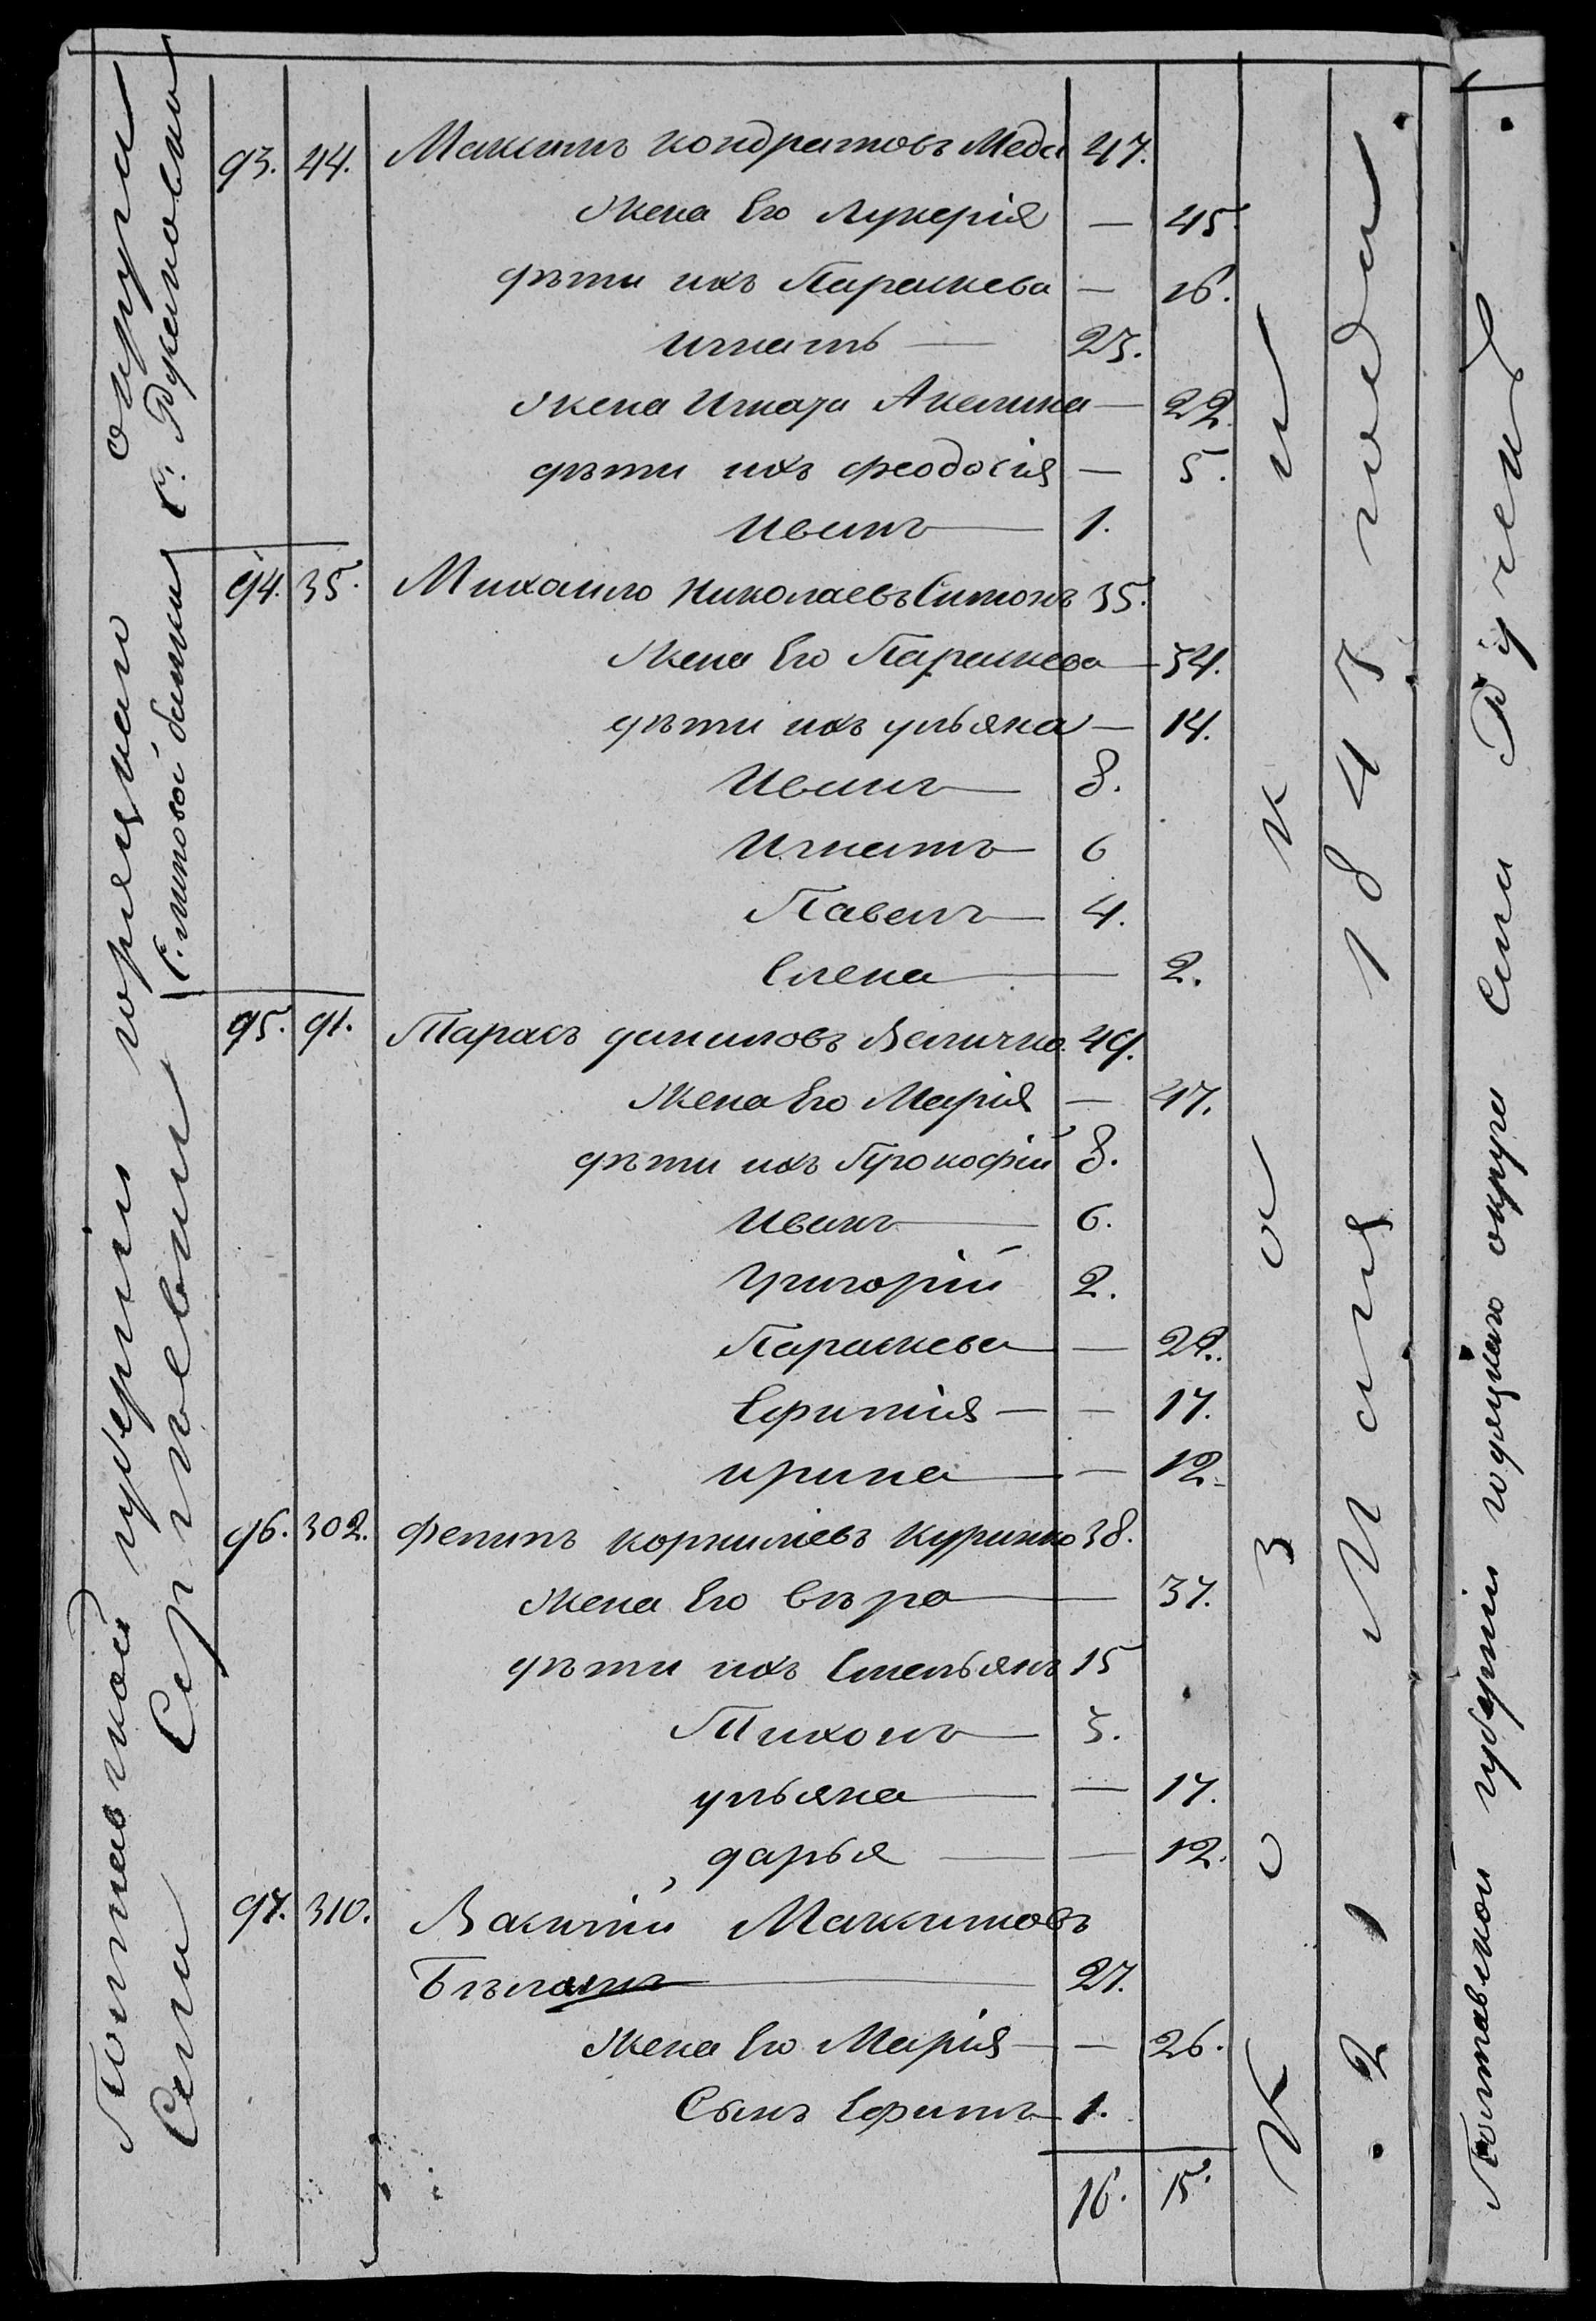 Полтавской губерніи хорецкаго округи
Сели Сергиевки
С. титовой балки
93. 44. Максимъ кондратовъ Меда 47.
Жена Его Лукерія — 45.
дѣти ихъ Параскева — 16.
игнатъ — 23.
Жена Игната Акелина — 22.
дѣти ихъ феодосія — 5.
Иванъ — 1.
94. 35. Михаило Николаевъ Симонъ 35.
Жена Его Параскева — 34.
дѣти ихъ ульяна — 14.
Иванъ — 8.
Игнатъ — 6
Павелъ — 4.
Елена — 2.
95. 91. Тарасъ даниловъ Величко. 49.
Жена Его Марія — 47.
дѣти ихъ Прокофій 8.
Иванъ — 6.
Григорій 2.
Параскева — 22.
Ефимія — — 17.
ирина — 12.
96. 302. Филипъ корниліевъ Куринко 38.
Жена Его Вѣра — 37.
дѣти ихъ Емельянъ 15
Тихонъ — 3.
ульяна — — 17.
дарья — — 12.
97. 310. Василій Максимовъ
Бѣланъ — 27.
Жена Его Марія — — 26.
Сынъ Ефимъ — 1.
16. 15.
К о з а к и
21 Маія 1843 года
Полтавской губерніи годяцкаго округи Сели Ручки